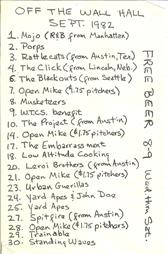 OFF THE WALL HALL
SEPT. 1982
1. Mojo (R&B from Manhattan)
2. Porps
3. Rattlecats (from Austin, Tex)
4. The Click (from Lincoln, Neb.)
6. The Blackouts (from Seattle)
7. Open Mike ($1.75 pitchers)
8. Musketeers
9. W.T.C.S. benefit
10. The Project (from Austin)
14. Open Mike ($1.75 pitchers)
17. The Embarrassment
18. Low Altitude Cooking
20. Leroi Brothers (from Austin)
21. Open Mike ($1.75 pitchers)
23. Urban Guerillas
24. Yard Apes & John Doe
25. Yard Apes
27. Spitfire (from Austin)
28. Open Mike ($1.75 pitchers)
29. Trainable
30. Standing Waves
FREE BEER 8-9 Wed thru Sat.